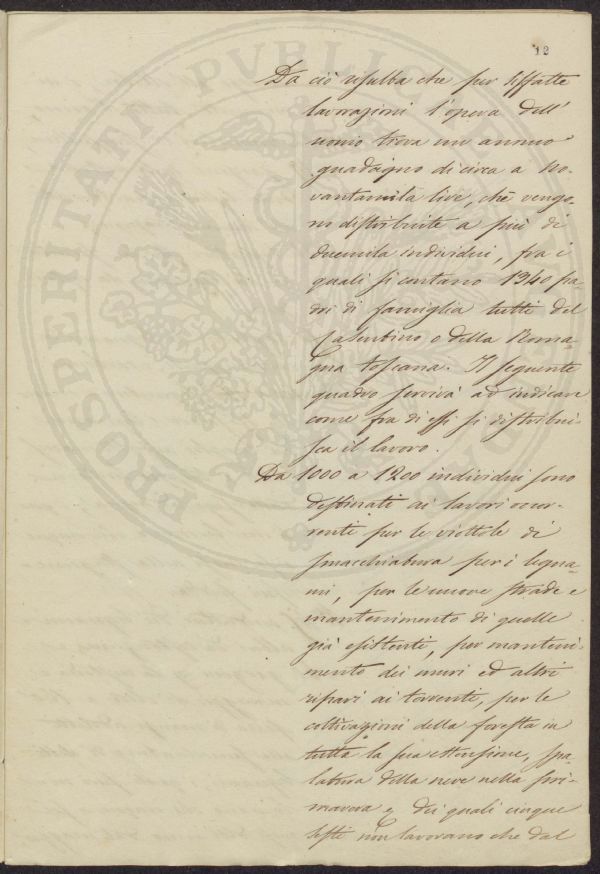 12
Da ciò risulta che per siffatte
lavorazioni l'opera dell'
uomo trova un annuo
guadagno di circa a no-
vantamila lire, che vengo-
no distribuite a più di
duemila individui, fra i
quali si contano 1340 pa-
dri di famiglia tutti del
Casentino o della Roma-
gna toscana. Il seguente
quadro servirà ad indicare
come fra di essi si distribui-
sca il lavoro.
Da 1000 a 1200 individui sono
destinati ai lavori occor-
renti per le viottole di
smacchiatura per i legna-
mi, per le nuove strade e
mantenimento di quelle
già esistenti, per manteni-
mento dei muri ed altri
ripari ai torrenti, per le
coltivazioni della foresta in
tutta la sua estensione, spa-
latura della neve nella pri-
mavera e dei quali cinque
sesti non lavorano che dal
PROSPERITATI PVBLICAE